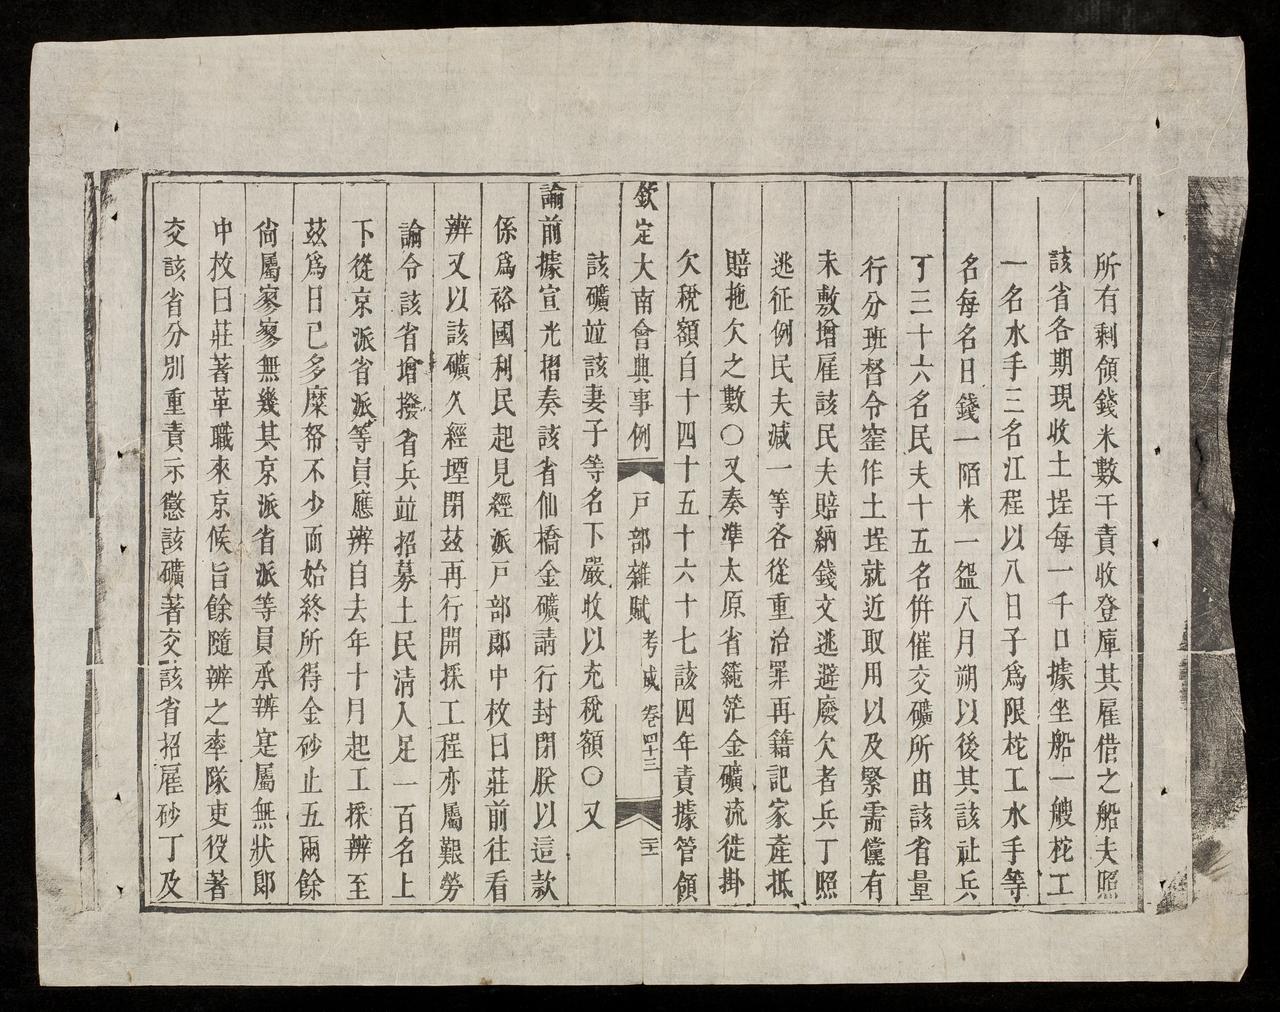 所有剩領錢米數干責收登庫其雇借之船夫照
該省各期現收土埕每一千口據坐船一艘柁工
一名水手三名江程以八日子爲限柁工水手等
名每名日錢一陌米一盌八月朔以後其該社兵
丁三十六名民夫十五名併催交礦所由該省量
行分班督令窑作土埕就近取用以及緊需儻有
未敷增雇該民夫賠納錢文逃避廢欠者兵丁照
逃征例民夫減一等各從重治罪再籍記家產抵
賠拖欠之數〇又奏準太原省䉷茫金礦流徙掛
欠稅額自十四十五十六十七該四年責據管領
欽定大南會典事例 戶部雜賦 考成 卷四十三 二十一
該礦並該妻子等名下嚴收以充稅額〇又
諭前據宣光摺奏該省仙橋金礦請行封閉朕以這款
係爲裕國利民起見經派戶部郎中枚曰莊前往看
辨又以該礦久經堙閉茲再行開採工程亦屬艱勞
諭令該省增撥省兵並招募土民淸人足一百名上
下從京派省派等員應辨自去年十月起工採辨至
茲爲日已多糜帑不少而始終所得金砂止五兩餘
尙屬寥寥無幾其京派省派等員承辨寔屬無狀郎
中枚曰莊著革職來京候旨餘隨辨之率隊吏役著
交該省分別重責示懲該礦著交該省招雇砂丁及